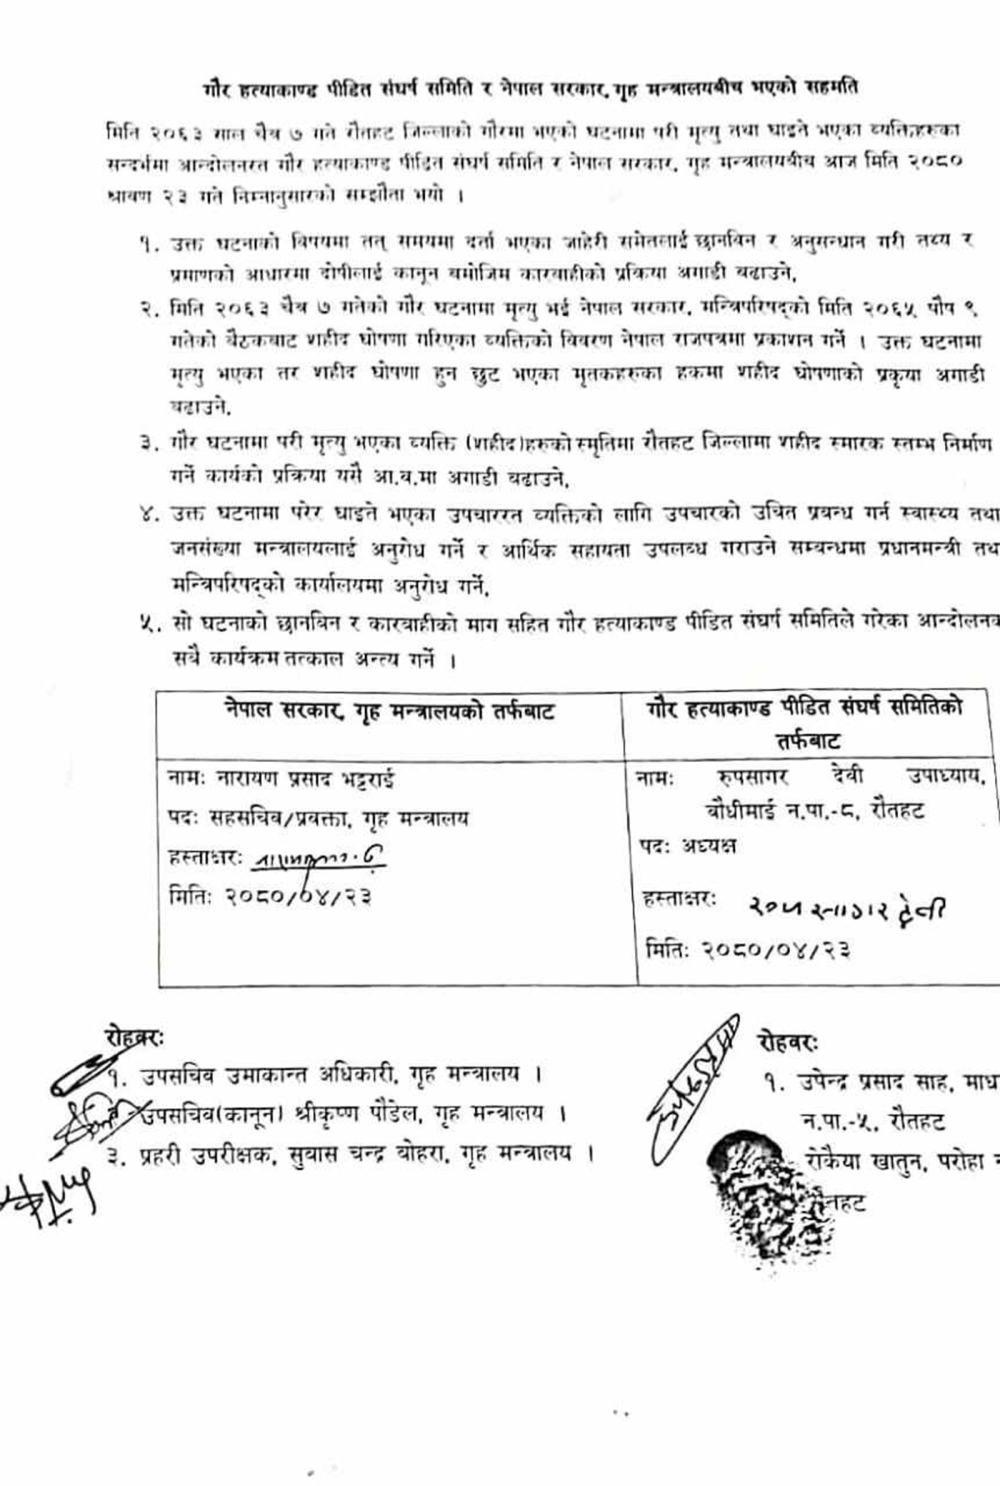 गौर हत्याकाण्ड पीडित संघर्ष समिति र नेपाल सरकार, गृह मन्त्रालयबीच भएको सहमति
मिति २०६३ साल चैत्र ७ गते रौतहट जिल्लाको गौरमा भएको घटनामा परी मृत्यु तथा घाइते भएका व्यक्तिहरुका
सन्दर्भमा आन्दोलनरत गौर हत्याकाण्ड पीडित संघर्ष समिति र नेपाल सरकार, गृह मन्त्रालयबीच आज मिति २०८०
श्रावण २३ गते निम्नानुसारको सम्झौता भयो ।
१. उक्त घटनाको विषयमा तत् समयमा दर्ता भएका जाहेरी समेतलाई छानविन र अनुसन्धान गरी तथ्य र
प्रमाणको आधारमा दोषीलाई कानून बमोजिम कारवाहीको प्रक्रिया अगाडी बढाउने,
२. मिति २०६३ चैत्र ७ गतेको गौर घटनामा मृत्यु भई नेपाल सरकार, मन्त्रिपरिषद्को मिति २०६५ पौष ९
गतेको बैठकबाट शहीद घोषणा गरिएका व्यक्तिको विवरण नेपाल राजपत्रमा प्रकाशन गर्ने । उक्त घटनामा
मृत्यु भएका तर शहीद घोषणा हुन छुट भएका मृतकहरुका हकमा शहीद घोषणाको प्रकृया अगाडी
बढाउने,
३. गौर घटनामा परी मृत्यु भएका व्यक्ति (शहीद)हरुको स्मृतिमा रौतहट जिल्लामा शहीद स्मारक स्तम्भ निर्माण
गर्ने कार्यको प्रक्रिया यसै आ.व.मा अगाडी बढाउने,
४. उक्त घटनामा परेर घाइते भएका उपचाररत व्यक्तिको लागि उपचारको उचित प्रबन्ध गर्न स्वास्थ्य तथा
जनसंख्या मन्त्रालयलाई अनुरोध गर्ने र आर्थिक सहायता उपलब्ध गराउने सम्बन्धमा प्रधानमन्त्री तथ
मन्त्रिपरिषद्को कार्यालयमा अनुरोध गर्ने,
५. सो घटनाको छानबिन र कारबाहीको माग सहित गौर हत्याकाण्ड पीडित संघर्ष समितिले गरेका आन्दोलनक
सबै कार्यक्रम तत्काल अन्त्य गर्ने ।
नेपाल सरकार, गृह मन्त्रालयको तर्फबाट
नामः नारायण प्रसाद भट्टराई
पदः सहसचिव/प्रवक्ता, गृह मन्त्रालय
हस्ताक्षरः
मितिः २०८०/०४/२३
गौर हत्याकाण्ड पीडित संघर्ष समितिको
तर्फबाट
नामः रुपसागर देवी उपाध्याय,
बौधीमाई न.पा.-८, रौतहट
पदः अध्यक्ष
हस्ताक्षरः रुपसागर देवी
मितिः २०८०/०४/२३
रोहबरः
१. उपसचिव उमाकान्त अधिकारी, गृह मन्त्रालय ।
उपसचिव(कानून) श्रीकृष्ण पौडेल, गृह मन्त्रालय ।
३. प्रहरी उपरीक्षक, सुबास चन्द्र बोहरा, गृह मन्त्रालय ।
रोहबरः
१. उपेन्द्र प्रसाद साह, माध
न.पा.-५, रौतहट
रोकैया खातुन, परोहा न
रौतहट